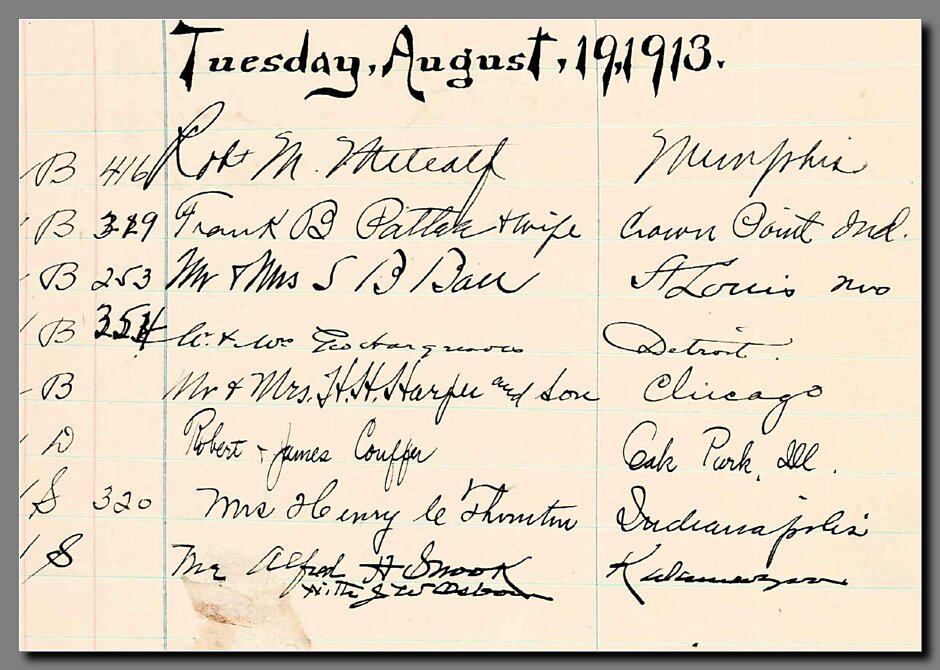 Tuesday, August, 19, 1913.
B 416 Robt M. Metcalf Memphis
B 329 Frank B + wife Crown Point Ind.
B 253 Mr & Mrs S B Ball St Louis Mo
B 354 Mr. & Mrs Geo Hargreaves Detroit.
B Mr & Mrs. H. H. Harper and Son Chicago
D Robert + James Couffer Oak Park, Ill.
S 320 Mrs Henry C Thornton Indianapolis
S Mr Alfred H Snook Kalamazoo
with J W Osborn